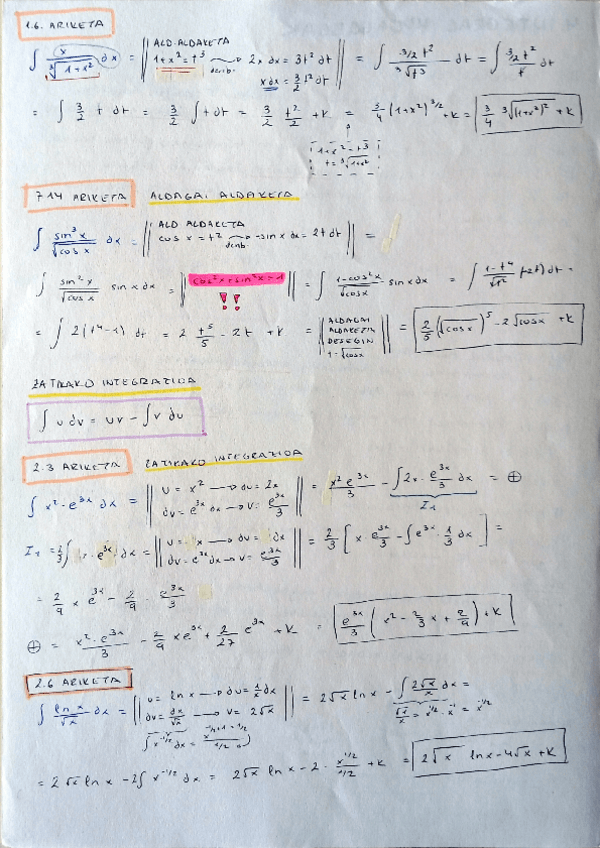 1.6. ARIKETA
∫ x/∛(1+x²) dx = || ALD. ALDAKETA 1+x² = t³ → derib. 2x dx = 3t² dt x dx = 3/2 t² dt || = ∫ (3/2 t²)/∛t³ dt = ∫ (3/2 t²)/t dt
= ∫ 3/2 t dt = 3/2 ∫ t dt = 3/2 t²/2 + K = 3/4 (1+x²)^3/2 + K = 3/4 ∛(1+x²)² + K
1+x² = t³
t = ∛(1+x²)
7.14 ARIKETA ALDAGAI ALDAKETA
∫ sin³x/√cos x dx = || ALD ALDAKETA cos x = t² → derib. -sin x dx = 2t dt || =
∫ sin²x/√cos x sin x dx = || cos²x + sin²x = 1 !! || = ∫ (1-cos²x)/√cos x sin x dx = ∫ (1-t⁴)/√t² (-2t) dt =
= ∫ 2(t⁴-1) dt = 2 t⁵/5 - 2t + K = || ALDAGAI ALDAKETA DESEGIN t=√cos x || = 2/5 (√cos x)⁵ - 2√cos x + K
ZATIKAKO INTEGRAZIOA
∫ u dv = uv - ∫ v du
2.3 ARIKETA ZATIKAKO INTEGRAZIOA
∫ x² · e^3x dx = || u = x² → du = 2x dv = e^3x dx → v = e^3x/3 || = x² e^3x/3 - ∫ 2x · e^3x/3 dx = ⊕
I₁
I₁ = 2/3 ∫ x · e^3x dx = || u = x → du = dx dv = e^3x dx → v = e^3x/3 || = 2/3 [x · e^3x/3 - ∫ e^3x · 1/3 dx] =
= 2/9 x e^3x - 2/9 · e^3x/3
⊕ = x² · e^3x/3 - 2/9 x e^3x + 2/27 e^3x + K = e^3x/3 (x² - 2/3 x + 2/9) + K
2.6 ARIKETA
∫ ln x/√x dx = || u = ln x → du = 1/x dx dv = dx/√x → v = 2√x || = 2√x ln x - ∫ 2√x/x dx =
∫ x^-1/2 dx = x^(-1/2+1)/(1/2) √x/x = x^1/2 · x^-1 = x^-1/2
= 2√x ln x - 2∫ x^-1/2 dx = 2√x ln x - 2 · x^1/2/(1/2) + K = 2√x ln x - 4√x + K